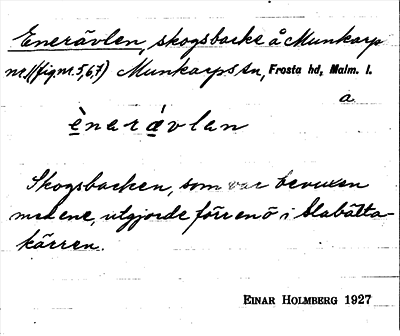 Enerävlen, skogsbacke å Munkarp
nr 1 (fig nr. 5,6,7) Munkarps sn, Frosta hd, Malm. l.
a
ènerǽvlan
Skogsbacken, som var bevuxen
med ene, utgjorde förr en ö i Slabätta-
kärren.
EINAR HOLMBERG 1927